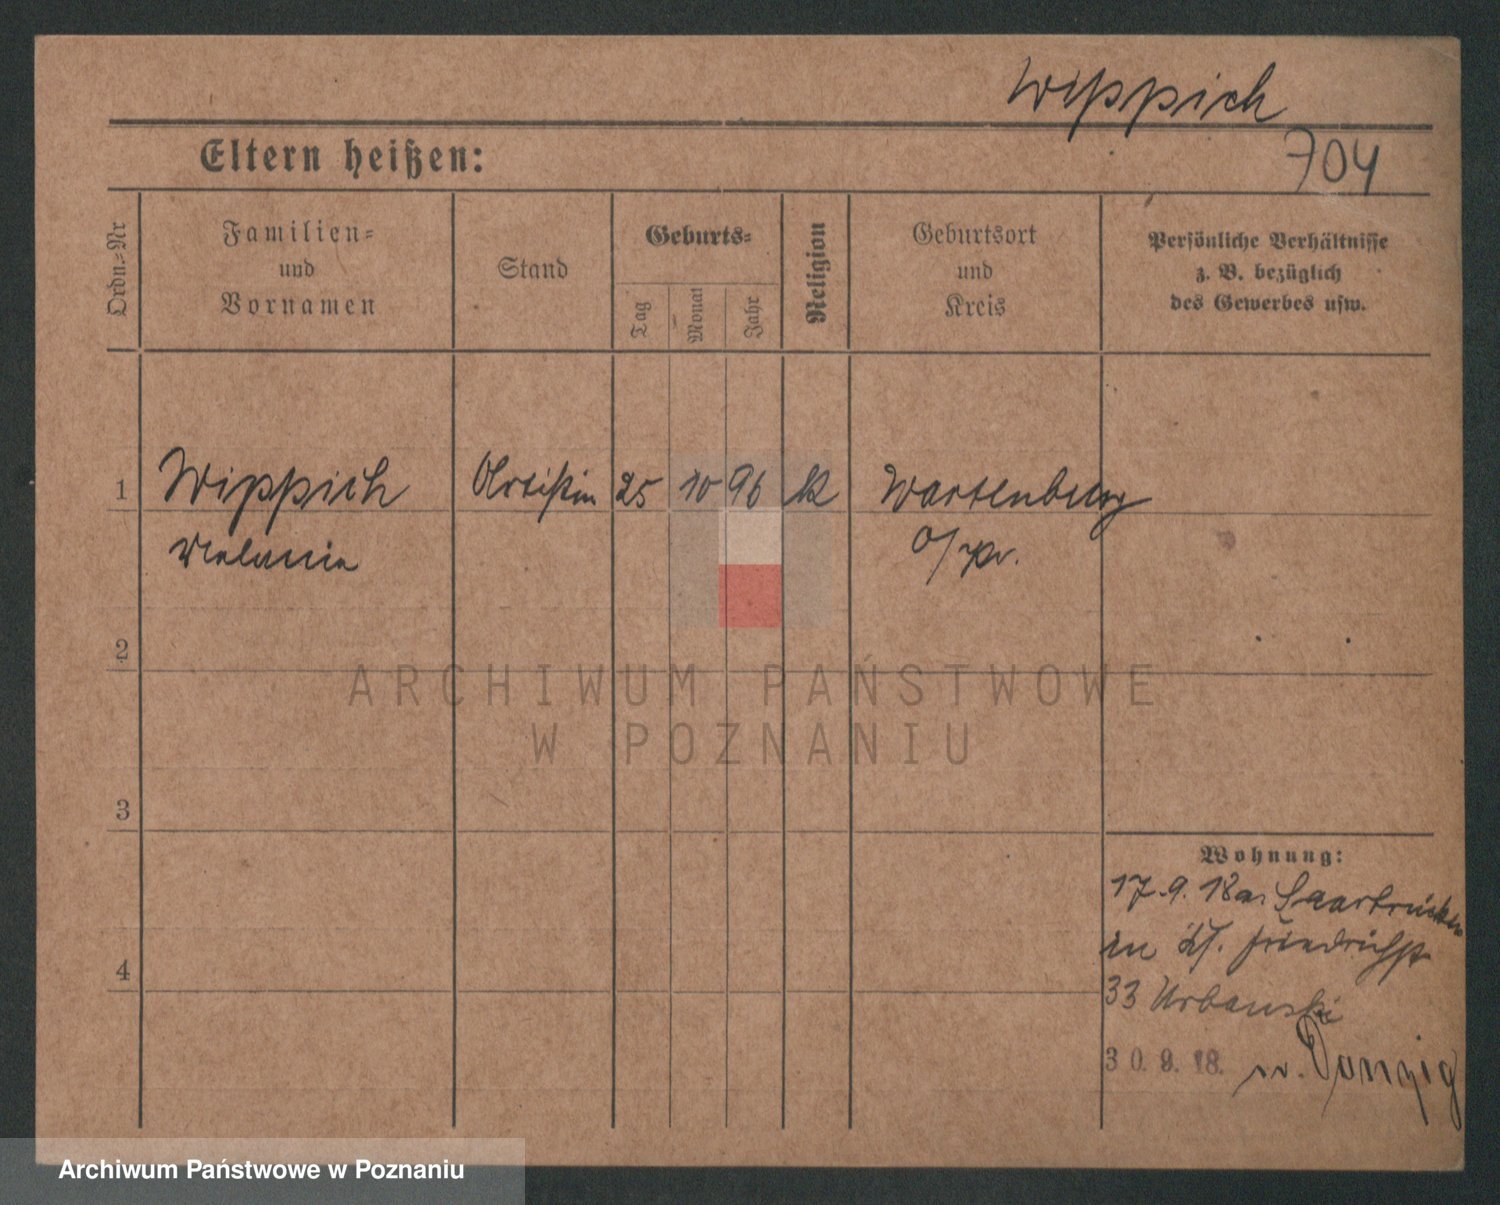 Wippich
704
Eltern heißen:
Ordn.-Nr
Familien-
und
Vornamen
Stand
Geburts-
Tag
Monat
Jahr
Religion
Geburtsort
und
Kreis
Persönliche Verhältnisse
z. B. bezüglich
des Gewerbes usw.
1 Wippich Artistin 25 10 96 K Wartenburg
Melanie O/pr.
2
3
4
Wohnung:
17.9.18 a. Saarbrücken
in Kl. Friedrichst
33 Urbanski
30.9.18. n. Danzig
ARCHIWUM PAŃSTWOWE
W POZNANIU
Archiwum Państwowe w Poznaniu